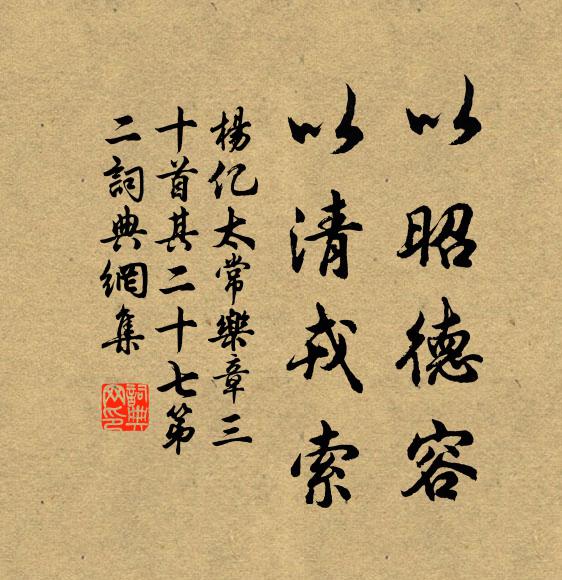 以昭德容
以清戎索
楊億太常樂章三
十首其二十七第
二詞典網集
詞典
网印